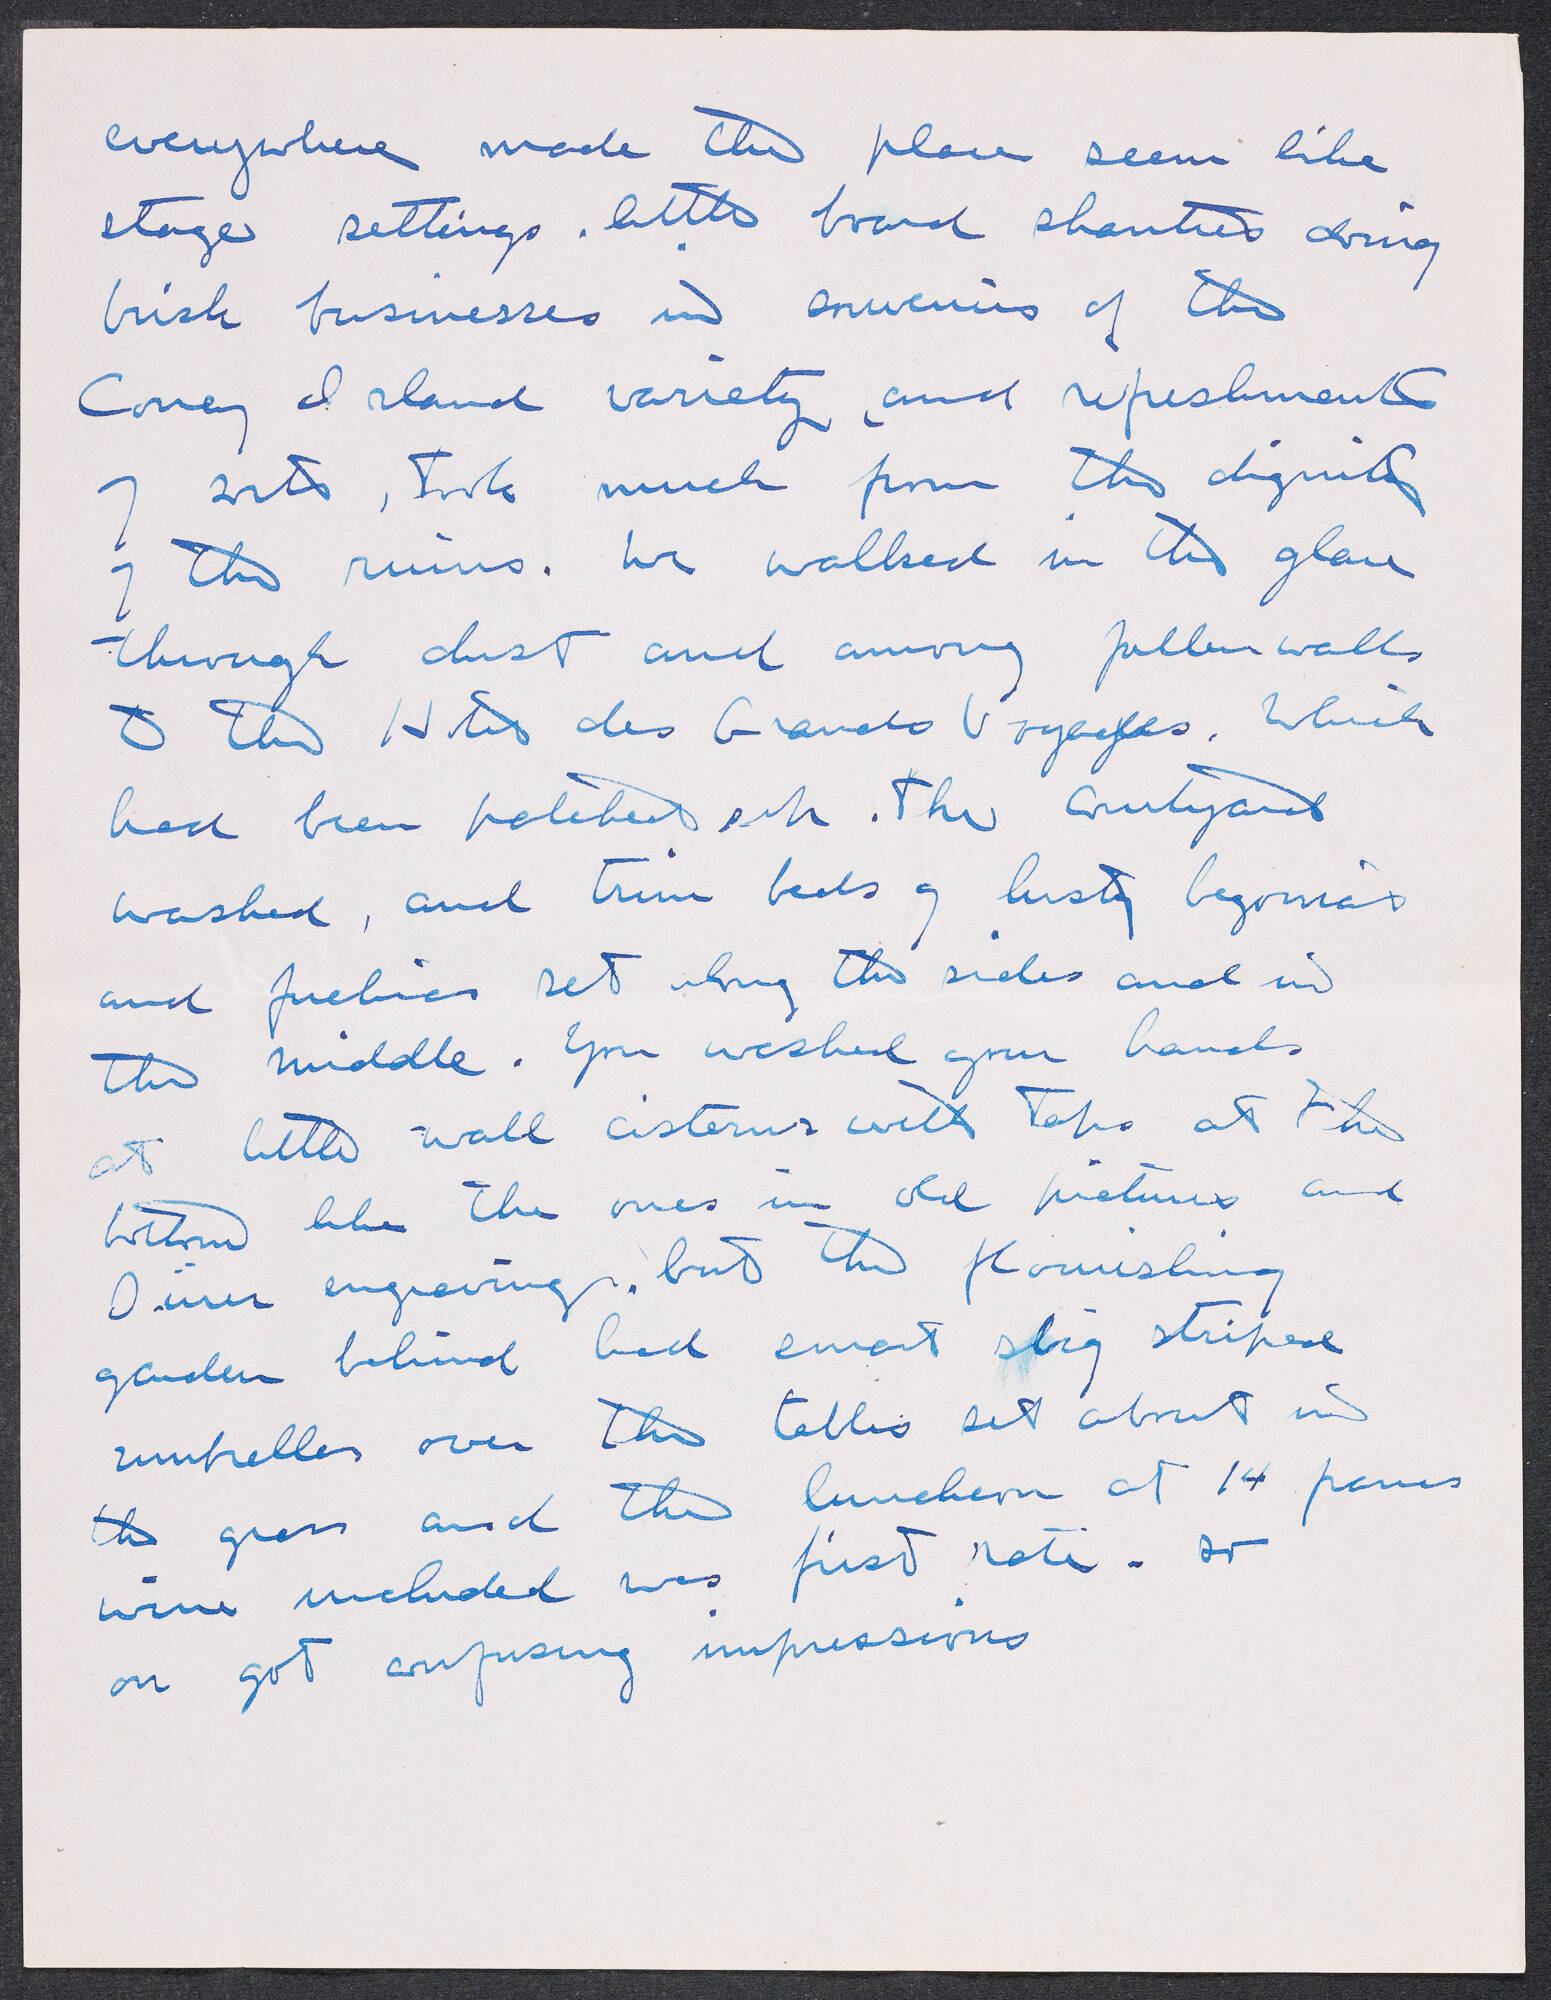 everywhere made the place seem like
stage settings. little board shanties doing
brisk businesses in souvenirs of the
Coney Island variety, and refreshments
of sorts, took much from the dignity
of the ruins. We walked in the glare
through dust and among fallen walls
to the Hotel des Grands Voyages. Which
had been patched up. The courtyard
washed, and trim beds of lusty begonias
and fuchias set along the sides and in
the middle. You washed your hands
at little wall cisterns with taps at the
bottom like the ones in old pictures and
Dürer engravings. but the flourishing
garden behind had smart big striped
umbrellas over the tables set about in
the grass and the luncheon at 14 francs
wine included was first rate. So
on got confusing impressions